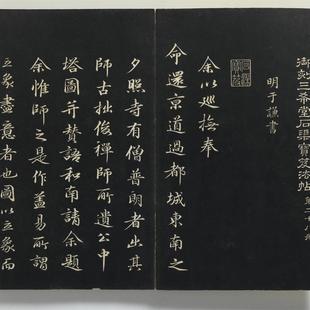 御刻三希堂石渠寶笈法帖第二十八冊
明于謙書
余以巡撫奉
命還京道過都城東南之
夕照寺有僧普朗者出其
師古拙俊禪師所遺公中
塔圖并贊語和南請余題
余惟師之是作蓋易所謂
立象盡意者也圖以立象而